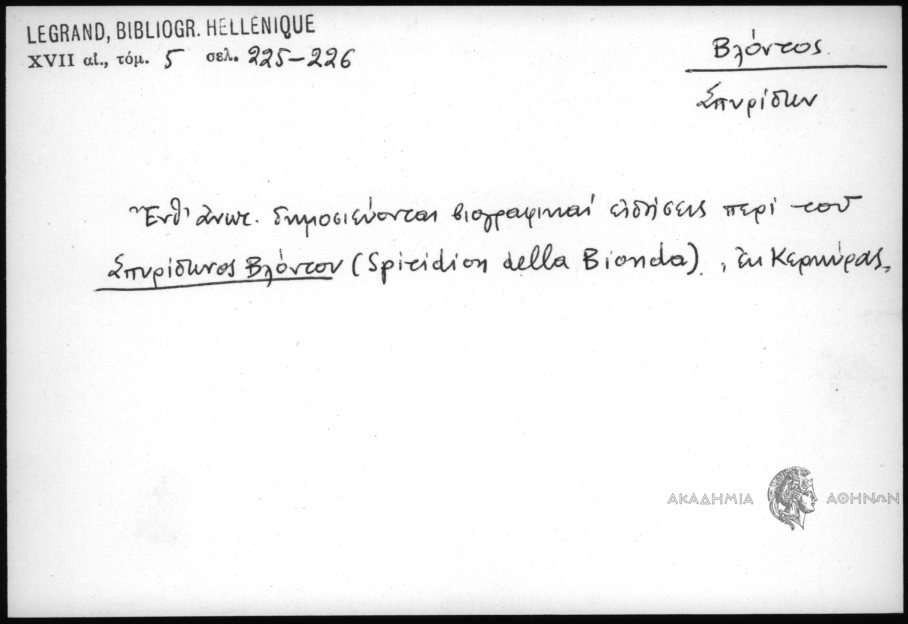 LEGRAND, BIBLIOGR. HELLÉNIQUE
XVII αἰ., τόμ. 5 σελ. 225-226
Βλόντος
Σπυρίδων
Ἔνθ' ἀνωτ. δημοσιεύονται βιογραφικαί εἰδήσεις περί τοῦ
Σπυρίδωνος Βλόντου (Spiridion della Bionda), ἐκ Κερκύρας.
ΑΚΑΔΗΜΙΑ ΑΘΗΝΩΝ